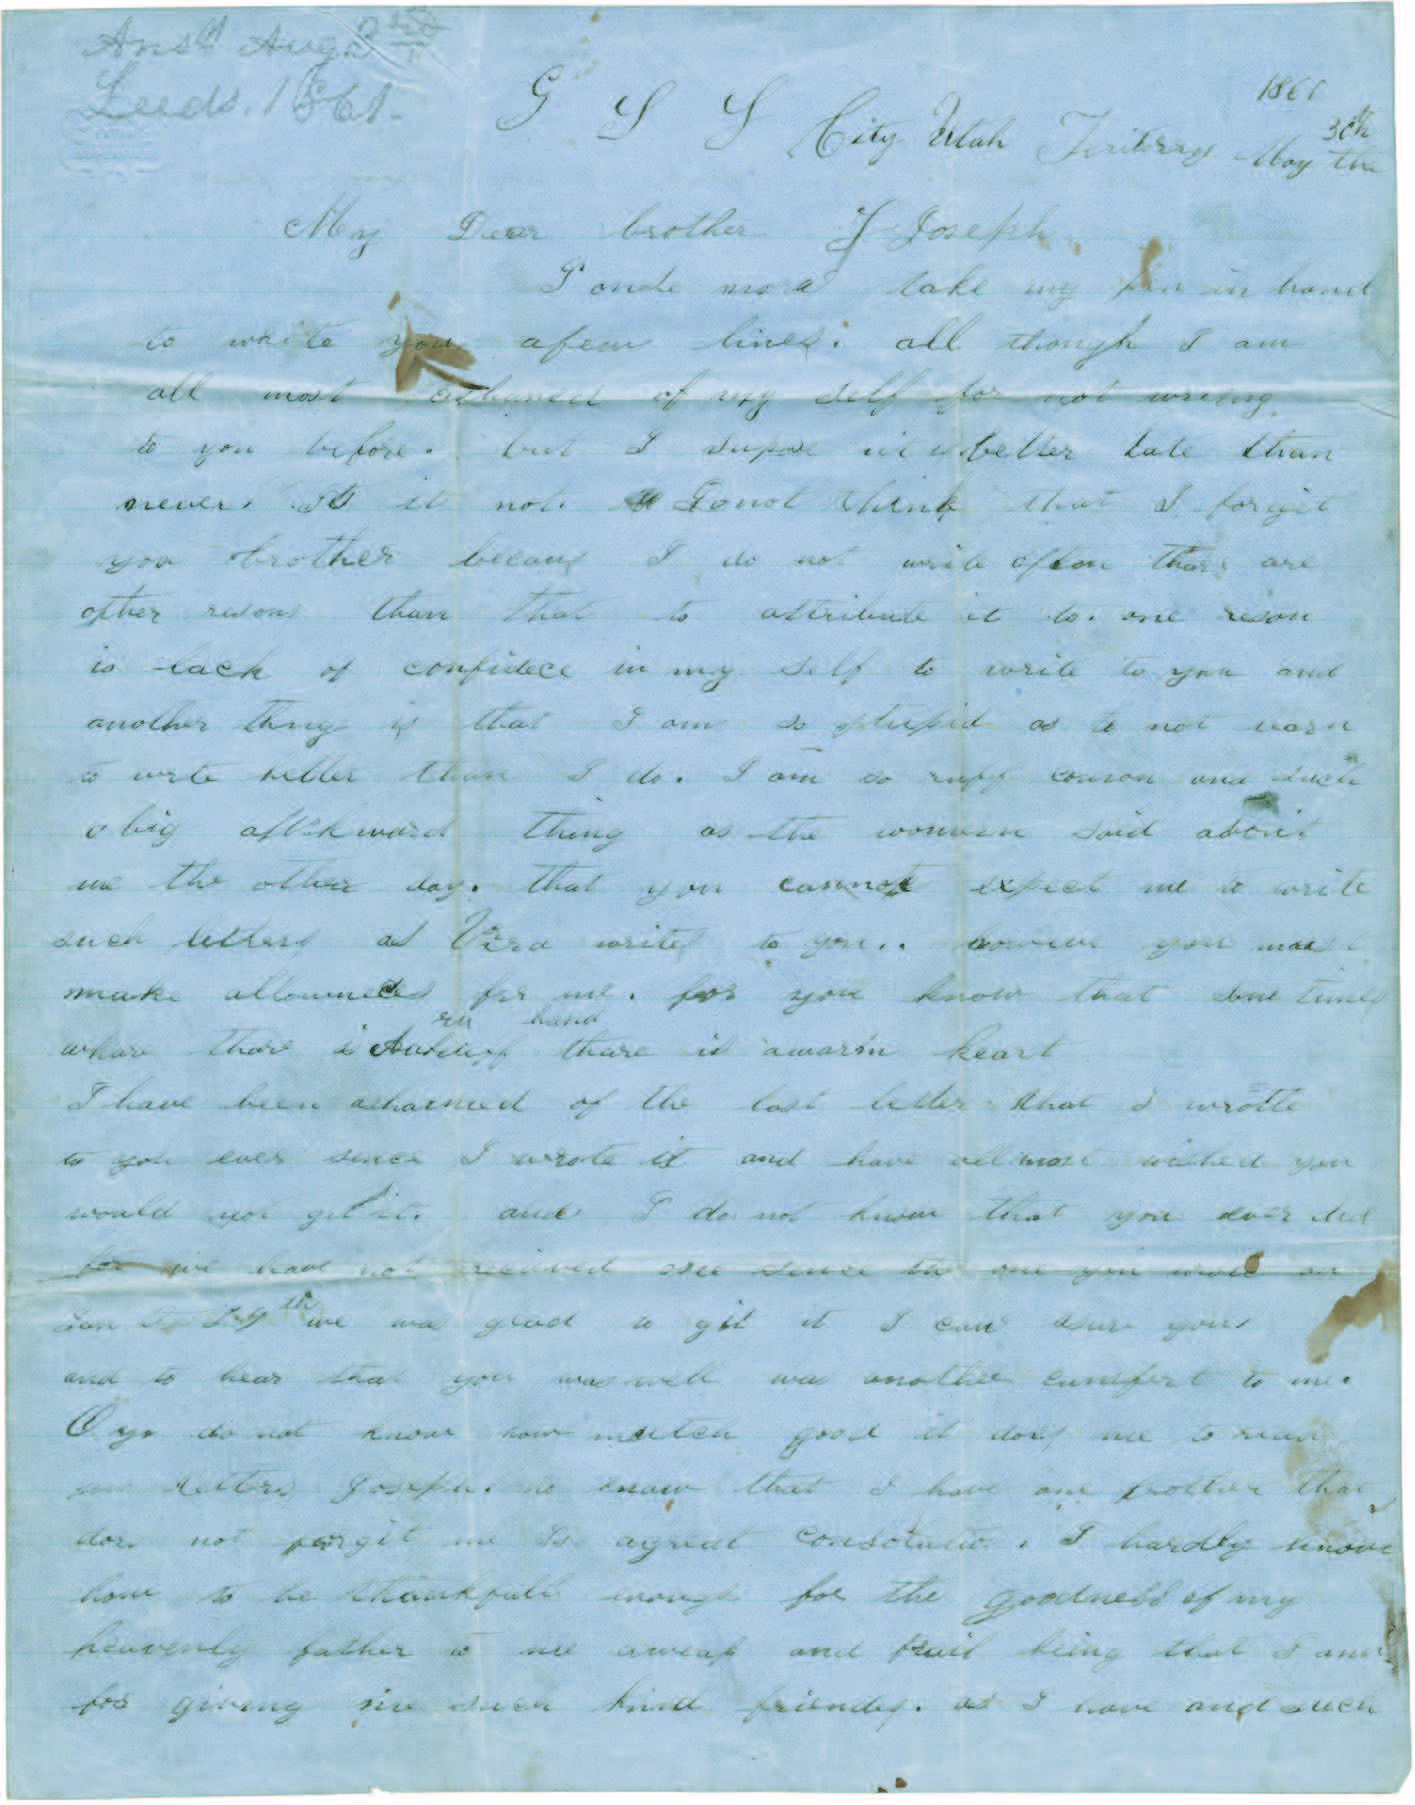 Ansd Aug 3rd
Leeds. 1861.
1861
G S S City Utah Teritory May the 30th
My Dear brother J Joseph
I onde more take my pen in hand
to write you afew lines. all though I am
all most ashamed of my self for not writing
to you before. but I supose it is better late than
never. Is it not. Do not think that I forgit
you brother becaus I do not write often thare are
other resons than that to attribute it to. one reson
is lack of confidece in my self to write to you and
another thing is that I am so stupid as to not larn
to write better than I do. I am so ruff and such
a big awkward thing as the women said about
me the other day. that you cannot expect me to write
such letters as Vira writes to you.. you must
make allowneces for me. for you know that some times
whare thare is en hand thare is awarm heart
I have been ashaimed of the last letter that I wrotte
to you ever since I wrote it and have allmost wished you
would not git it. and I do not know that you ever did
for we have not recieved one since the one you wrote on
Jan the 29th we was glad to git it I can asure you
and to hear that you was well was another cumfort to me.
O yo do not know how mutch good it dos me to read
your letters Joseph. to know that I have one brother that
dos not forgit me Is agreat consolatio. I hardly know
how to be thankfull enough for the goodness of my
heavenly father to me aweak and frail being that I am
for giving me such kind friends. as I have and such